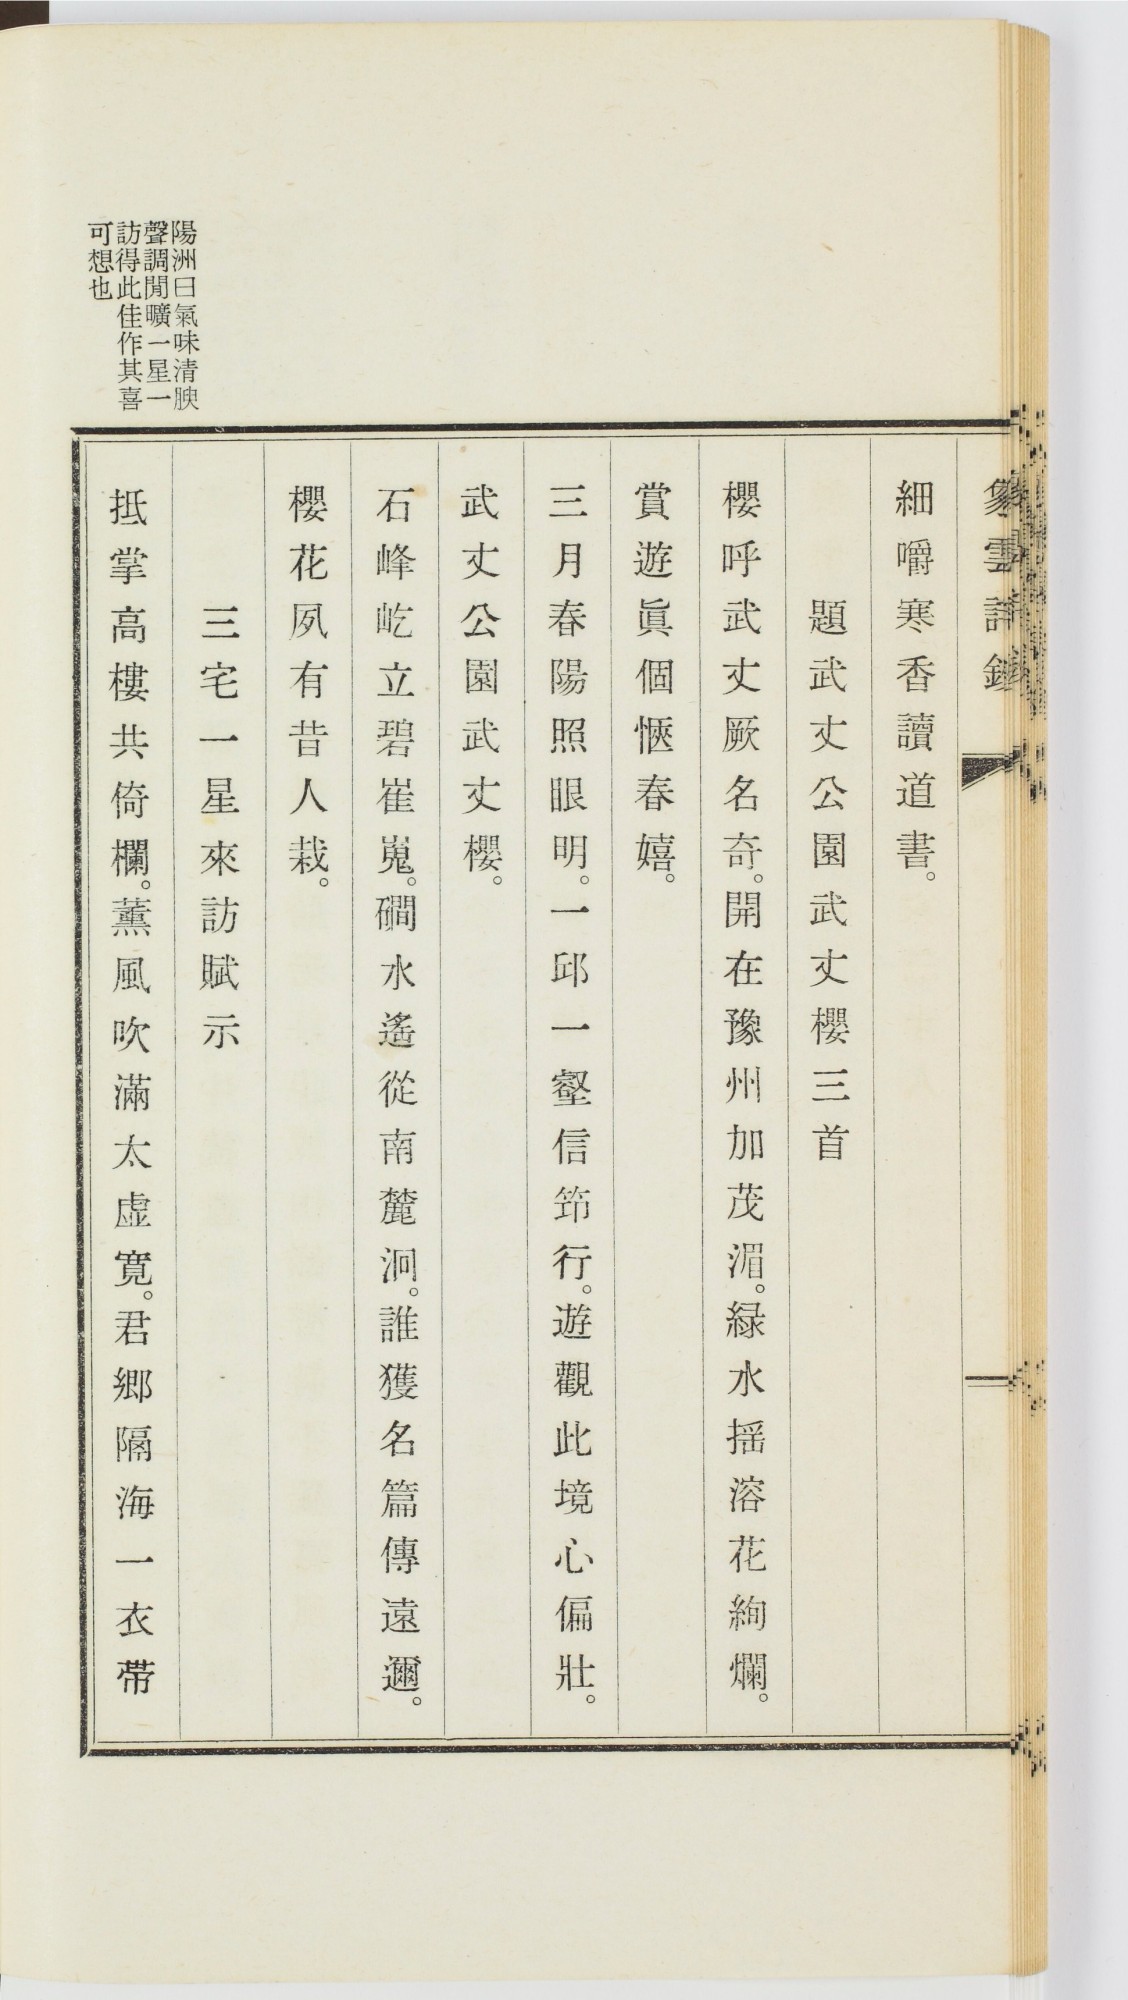 雲詩鈔
細嚼寒香讀道書。
題武丈公園武丈櫻三首
櫻呼武丈厥名奇。開在豫州加茂湄。緑水揺溶花絢爛。
賞遊眞個愜春嬉。
三月春陽照眼明。一邱一壑信筇行。遊觀此境心偏壯。
武丈公園武丈櫻。
石峰屹立碧崔嵬。磵水遙從南麓洄。誰獲名篇傳遠邇。
櫻花夙有昔人栽。
三宅一星來訪賦示
抵掌高樓共倚欄。薰風吹滿太虛寬。君鄉隔海一衣帶
陽洲曰氣味淸腴
聲調閒曠一星一
訪得此佳作其喜
可想也